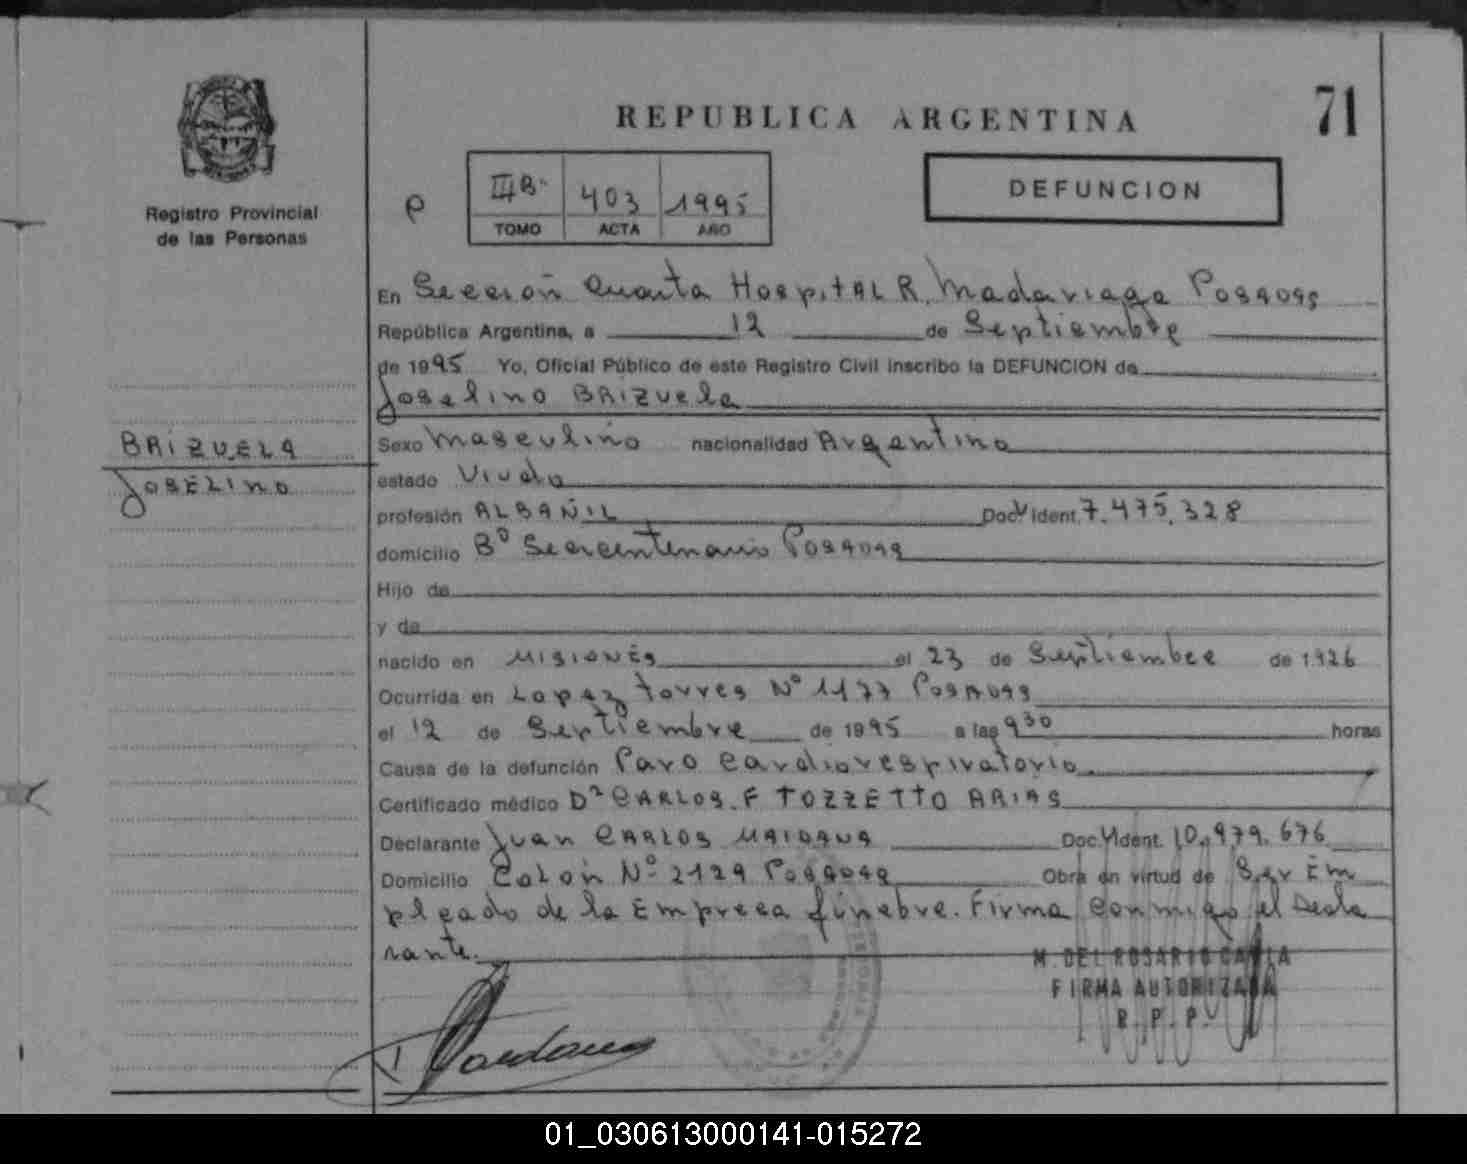 REPUBLICA ARGENTINA
71
Registro Provincial
de las Personas
P
III B
403
1995
TOMO
ACTA
AÑO
DEFUNCION
En Sección Cuarta Hospital R. Madariaga Posadas
República Argentina, a 12 de Septiembre
de 1995 Yo, Oficial Público de este Registro Civil inscribo la DEFUNCION de
Joselino Brizuela
BRIZUELA
JOSELINO
Sexo Masculino nacionalidad Argentino
estado Viudo
profesión ALBAÑIL Doc. Ident. 7.475.328
domicilio Bº Sesentenario Posadas
Hijo de
y de
nacido en Misiones el 23 de Septiembre de 1926
Ocurrida en Lopez Torres Nº 1177 Posadas
el 12 de Septiembre de 1995 a las 930 horas
Causa de la defunción Paro Cardiorespiratorio
Certificado médico Dr CARLOS F TOZZETTO ARIAS
Declarante Juan CARLOS MAIDANA Doc. Ident. 10.979.676
Domicilio Colón Nº 2129 Posadas Obra en virtud de Ser Em
pleado de la Empresa fúnebre. Firma conmigo el Decla
rante.
M. DEL ROSARIO
FIRMA AUTORIZADA
R. P. P.
01_030613000141-015272